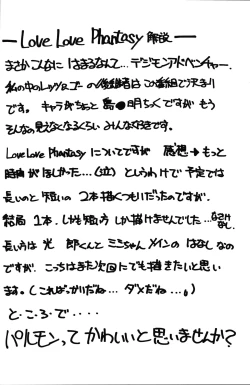 — Love Love Phantasy 解説 —
まさかこんなに はまるなんて…デジモンアドベンチャー.
私の中のレッツ&ゴーの後継者はこの番組で決まり
です。 キャラがちょっと島●明ちっくですが もう
そんなの見えなくなるくらい みんな大好きです。
Love Love Phantasy についてですが 感想→もっと
時間がほしかった…(泣) というわけで 予定では
長いのと短いの 2本描くつもりだったのですが.
結局 1本、しかも短い方しか描けませんでした…なさけなし.
長い方は 光 郎くんと ミミちゃん メインの はなし なの
ですが. こっちはまた次回にでも描きたいと思い
ます。(こればっかいだね… ダメだね…。)
と・ころ・で・・・・
パルモンって かわいいと思いませんか?